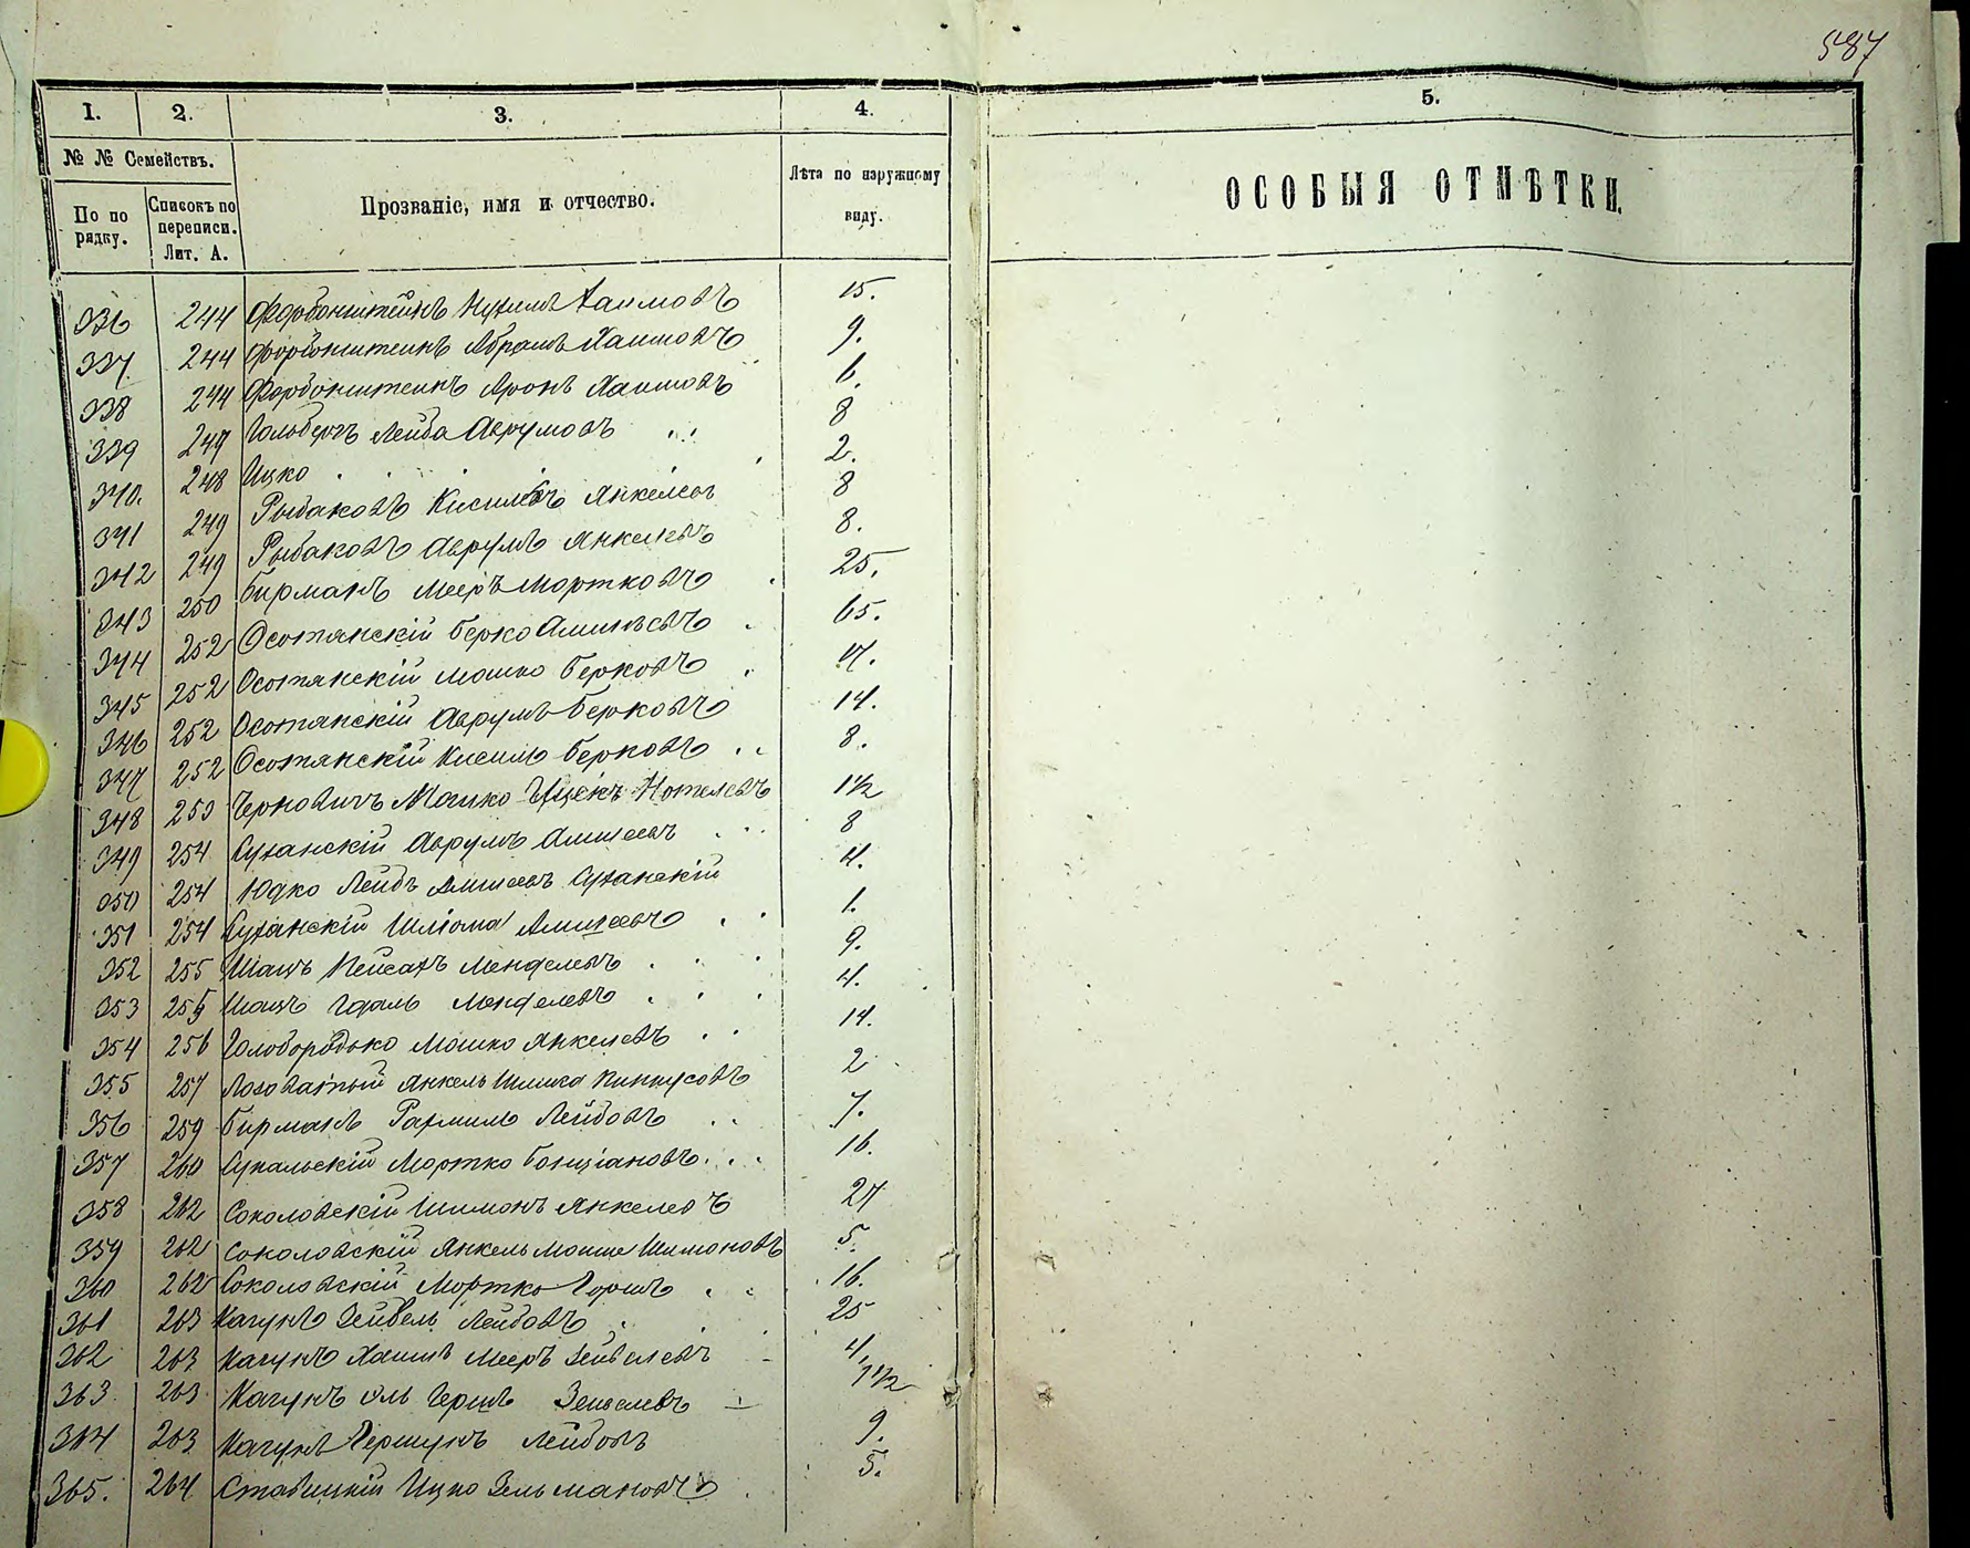 587
1. 2. 3. 4. 5.
№ № Семействъ.
По по рядку.
Списокъ по переписи. Лит. А.
Прозваніе, имя и отчество.
Лѣта по наружному виду.
ОСОБЫЯ ОТМѢТКИ.
336 244 Форбонштейнъ Нухимъ Хаимовъ 15.
337 244 Форбонштейнъ Абрамъ Хаимовъ 9.
338 244 Форбонштейнъ Аронъ Хаимовъ 6.
339 247 Гольбергъ Лейба Аврумовъ 8
340. 248 Ицко 2.
341 249 Рыбаковъ Янкелевъ 8
342 249 Рыбаковъ Аврумъ Янкелевъ 8.
343 250 Бирманъ Мееръ Мортковъ 25.
344 252 Осотянскій Берко 65.
345 252 Осотянскій Мошко Берковъ 17.
346 252 Осотянскій Аврумъ Берковъ 14.
347 252 Осотянскій Кисиль Берковъ 8.
348 253 Черновичъ Мошко Ицекъ Нотелевъ 1½
349 254 Суханскій Аврумъ 8
350 254 Юдко Лейбъ Суханскій 4.
351 254 Суханскій Шліома 1.
352 255 Шацъ Пейсахъ Менделевъ 9.
353 255 Шацъ Гдаль Менделевъ 4.
354 256 Голобородько Мошко Янкелевъ 14.
355 257 Лозоватый Янкель Шлика Пинкусовъ 2
356 259 Бирманъ Рахмиль Лейбовъ 7.
357 260 Сукальскій Мортко Бенціановъ 16.
358 262 Соколовскій Шимонъ Янкелевъ 27
359 262 Соколовскій Янкель Моише Шимоновъ 5.
360 262 Соколовскій Мортко Гершъ 16.
361 263 Кагунъ Зейвель Лейбовъ 25
362 263 Кагунъ Хаимъ Мееръ Зейвелевъ 4.
363. 263 Кагунъ Эль Гершъ Зейвелевъ 1½
364 263 Кагунъ Гершунъ Лейбовъ 9.
365. 264 Ставицкій Ицко Зельмановъ 5.